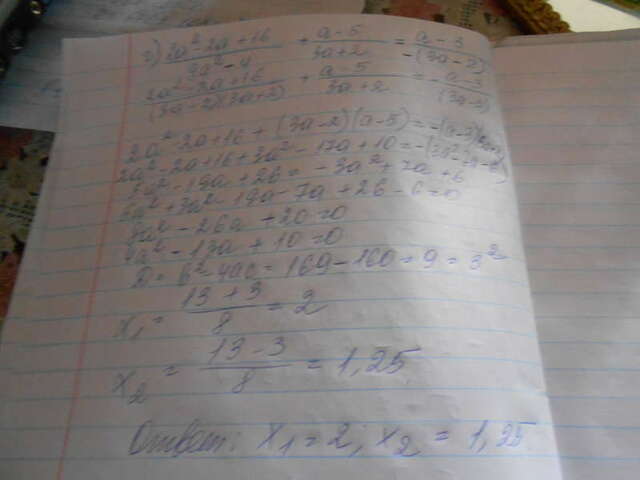 2a²-2a+16 / 9a²-4 + a-5 / 3a+2 = a-3 / -(3a-2)
2a²-2a+16 / (3a-2)(3a+2) + a-5 / 3a+2 = - a-3 / (3a-2)
2a²-2a+16+(3a-2)(a-5)=-(a-3)
2a²-2a+16+3a²-17a+10=-(3a²
5a²-19a+26=-3a²+7a+6
5a²+3a²-19a-7a+26-6=0
8a²-26a+20=0
4a²-13a+10=0
D=b²-4ac=169-160=9=3²
x₁= 13+3 / 8 =2
x₂ = 13-3 / 8 = 1,25
Ответ: x₁=2; x₂ = 1,25